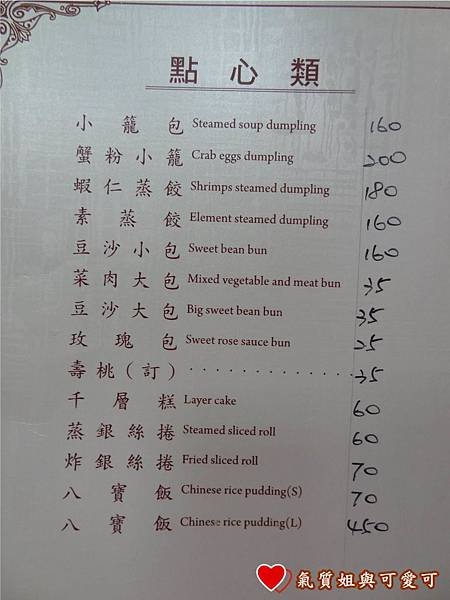 點心類
小籠包 Steamed soup dumpling 160
蟹粉小籠 Crab eggs dumpling 200
蝦仁蒸餃 Shrimps steamed dumpling 180
素蒸餃 Element steamed dumpling 160
豆沙小包 Sweet bean bun 160
菜肉大包 Mixed vegetable and meat bun 35
豆沙大包 Big sweet bean bun 35
玫瑰包 Sweet rose sauce bun 25
壽桃(訂)・・・・・・・・・・・・・・35
千層糕 Layer cake 60
蒸銀絲捲 Steamed sliced roll 60
炸銀絲捲 Fried sliced roll 70
八寶飯 Chinese rice pudding(S) 70
八寶飯 Chinese rice pudding(L) 450
氣質姐與可愛可